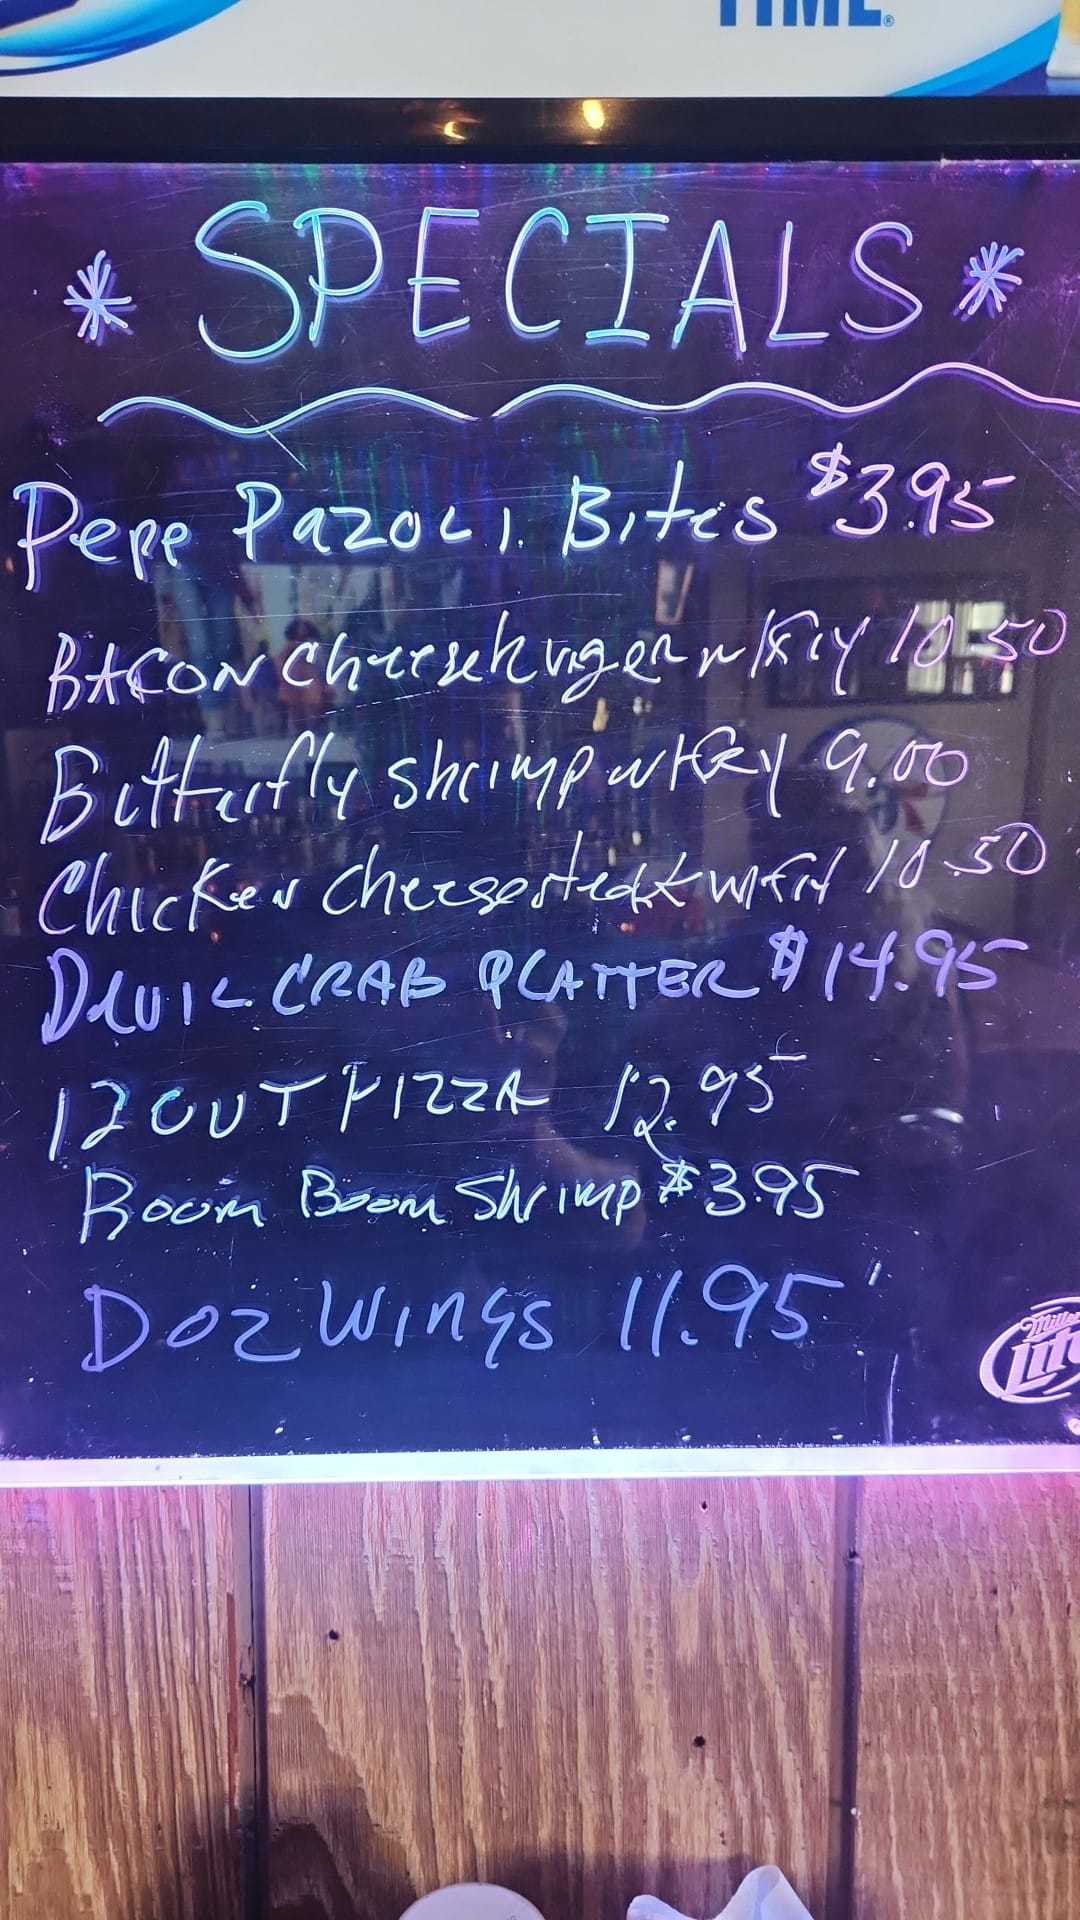 TIME®
* SPECIALS *
Pepe Pazoli Bites $3.95
BACON Cheeseburger w/Fry 10.50
Butterfly shrimp w/Fry 9.00
Chicken Cheesesteak w/Fry 10.50
Devil CRAB PLATTER $14.95
12 CUT PIZZA 12.95
Boom Boom Shrimp $3.95
Doz Wings 11.95
Miller
Lite